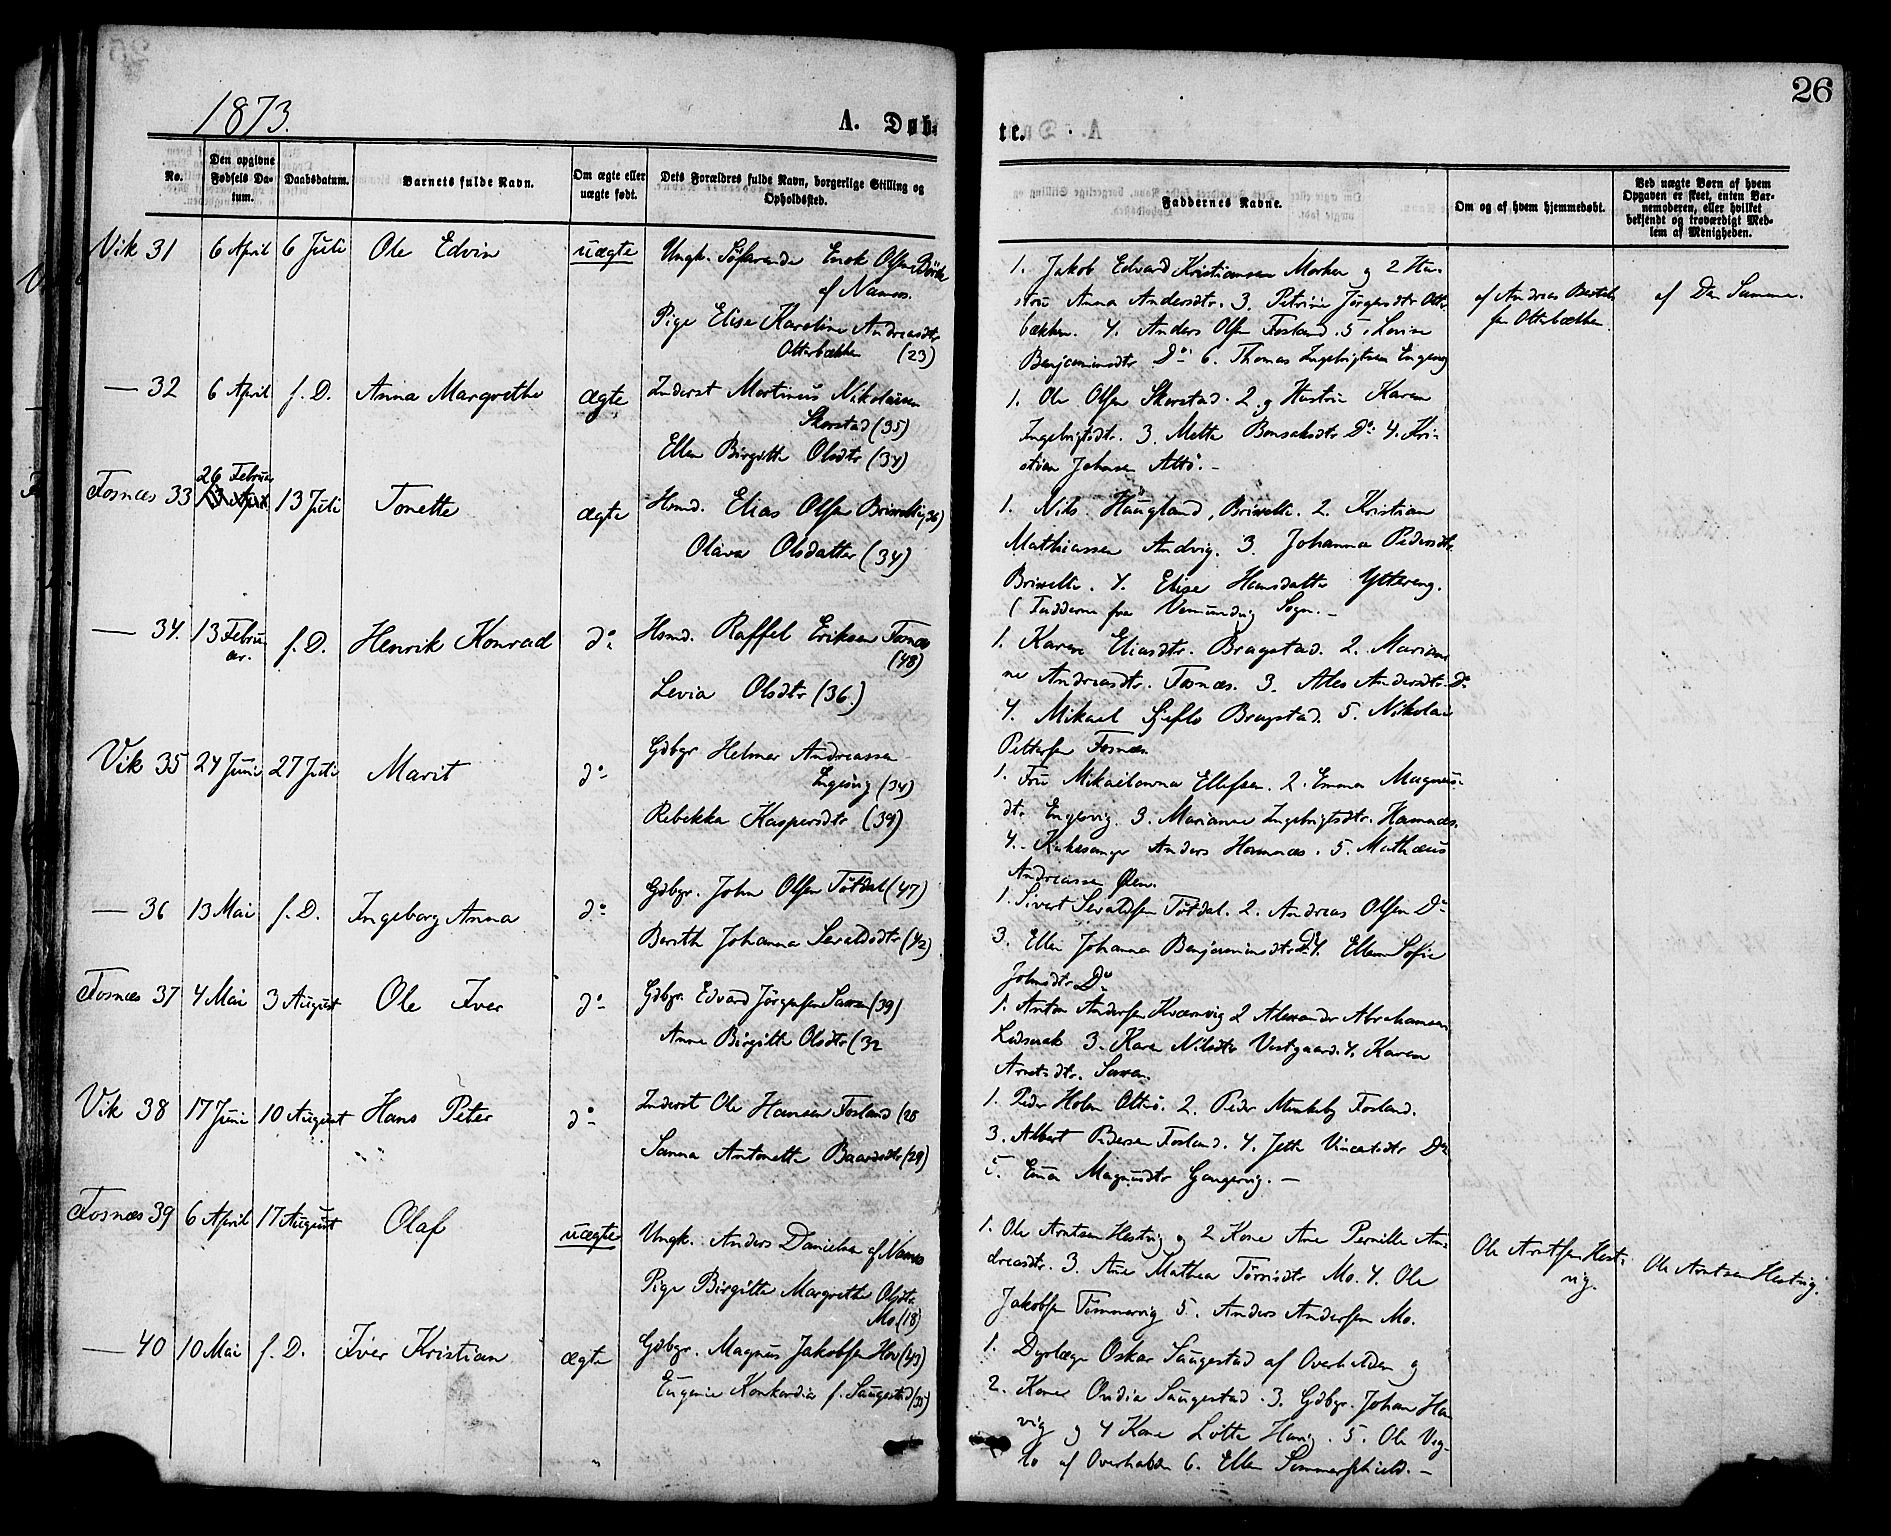 26
1873.
A. Døb-
te.
No.
Den opgivne Fødsels Da-tum.
Daabsdatum.
Barnets fulde Navn.
Om ægte eller uægte født.
Dets Forældres fulde Navn, borgerlige Stilling og Opholdssted.
Faddernes Navne.
Om og af hvem hjemmedøbt.
Ved uægte Børn af hvem Opgaven er skeet, enten Bar-nemoderen, eller hvilket bekjendt og troværdigt Med-lem af Menigheden.
Vik 31 6 April 6 Juli Ole Edvin uægte
Ungk. Søfarende Enok Olsen
af Namsos.
Pige Elise Karoline Andreasdtr
Otterbækken (23)
1. Jakob Edvard Kristiansen Morken og 2 Hu-
stru Anna Andersdtr. 3. Petrine Jørgensdtr Otter-
bækken. 4. Anders Olsen Fosland. 5. Lovise
Benjaminsdtr Do 6. Thomas Ingebrigtsen Engesvig
af Andreas
Otterbækken.
af Den Samme.
— 32 6 April s. D. Anna Margrethe ægte
Inderst Martinus Nikolaisen
Skorstad (35)
Ellen Birgitte Olsdtr (34)
1. Ole Olsen Skorstad. 2. og Hustru Karen
Ingebrigtsdtr. 3. Metta Bonsaksdtr Do 4. Kri-
stian Johnsen Altø. -
Fosnæs 33 26 Februar 13 Juli Tonette ægte
Hsmd. Elias Olsen (36)
Olava Olsdatter (34)
1. Nils Haugland, 2. Kristian
Mathiassen Andvig. 3. Johanna Pedersdtr.
4. Elise Hansdatter Yttereng.
(Fadderne fra Vemundvig Sogn. -
— 34. 13 Febru-
ar. s. D. Henrik Konrad do
Hsmd. Raffel Eriksen Fosnæs
(48)
Levia Olsdtr (36.)
1. Karen Eliasdtr. Bragstad. 2. Marian-
ne Andreasdtr. Fosnæs. 3. Ales Andersdtr. Do
4. Mikael Sjeflo Bragstad. 5. Nikolai
Pettersen Fosnæs.
Vik 35 24 Juni 27 Juli Marit do
Gdbgr Helmer Andreassen
Engesvig (34)
Rebekka Kaspersdtr (39)
1. Fru Mikaelanna Ellefsen. 2. Emma Magnus-
dtr Engesvig. 3. Marianne Ingebrigtsdtr. Hamnæs.
4. Kirkesanger Anders Hamnæs. 5. Mathæus
Andreassen Øien.
— 36 13 Mai s. D. Ingeborg Anna do
Gdbgr. John Olsen Tøtdal (47)
Bereth Johanna Sevaldsdtr (42)
1. Sivert Sevaldsen Tøtdal. 2. Andreas Olsen Do
3. Ellen Johanna Benjaminsdtr Do 4. Ellen Sofie
Johnsdtr Do
Fosnæs 37 4 Mai 3 August Ole Iver do
Gdbgr. Edvard Jørgensen Saven (39)
Anne Birgitte Olsdtr (32
1. Anton Andersen Kværnvig 2 Alexander Abrahamsen
Ledsnak 3. Karen Nilsdtr Vestgaard. 4. Karen
Arntsdtr. Saven.
Vik 38 17 Juni 10 August Hans Peter do
Inderst Ole Hansen Fosland (28
Sanna Antonette Baardsdtr (29)
1. Peder Holm Otterø. 2. Peder Fosland.
3. Albert Pedersen Fosland. 4. Jetta Vincentsdtr Do
5. Emma Magnusdtr Gangsvig. -
Fosnæs 39 6 April 17 August Olaf uægte
Ungk. Anders Danielsen af Namsos
Pige Birgitte Margrethe Olsdtr
Mo (18)
1. Ole Arntsen Hestvig og 2 Kone Ane Pernille An-
dreasdtr. 3. Ane Mathea Tørrisdtr Mo. 4. Ole
Jakobsen Tømmervig 5. Anders Andersen Mo.
Ole Arntsen Hest-
vig.
Ole Arntsen Hestvig.
— 40 10 Mai s. D. Iver Kristian ægte
Gdbgr. Magnus Jakobsen Hov (43)
Eugenie Konkordia f. Saugestad (35)
1. Dyrlæge Oskar Saugestad af Overhalden og
2. Kone Ovidia Saugestad. 3. Gdbgr. Johan Ha-
vig og 4 Kone Lotte Havig. 5. Ole Veg-
lo af Overhalden 6. Ellen Sommerschield. -